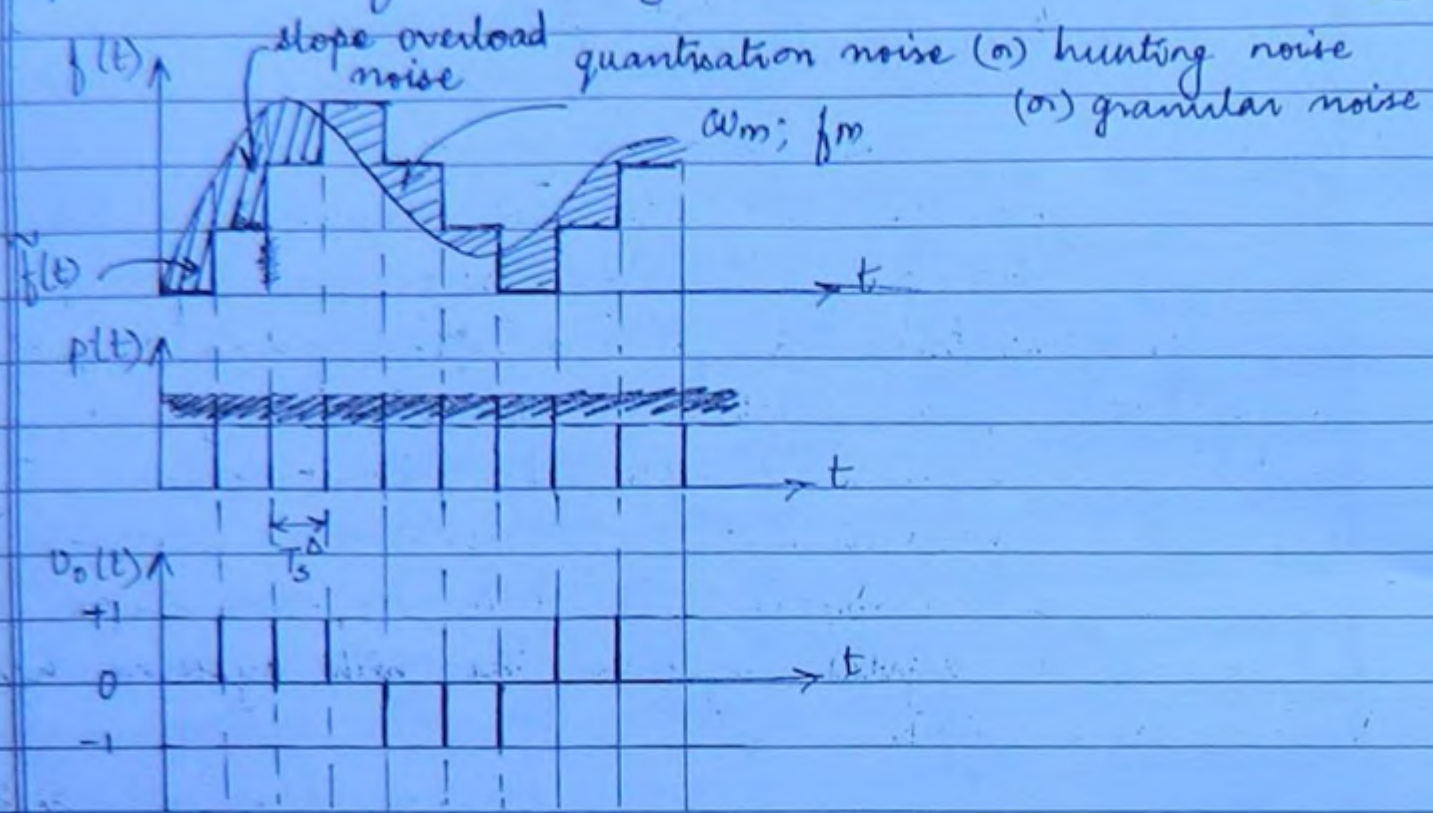 f(t)
slope overload
noise
quantisation noise (or) hunting noise
(or) granular noise
ωm; fm
f̃(t)
t
p(t)
t
Ts
v₀(t)
+1
0
t
-1